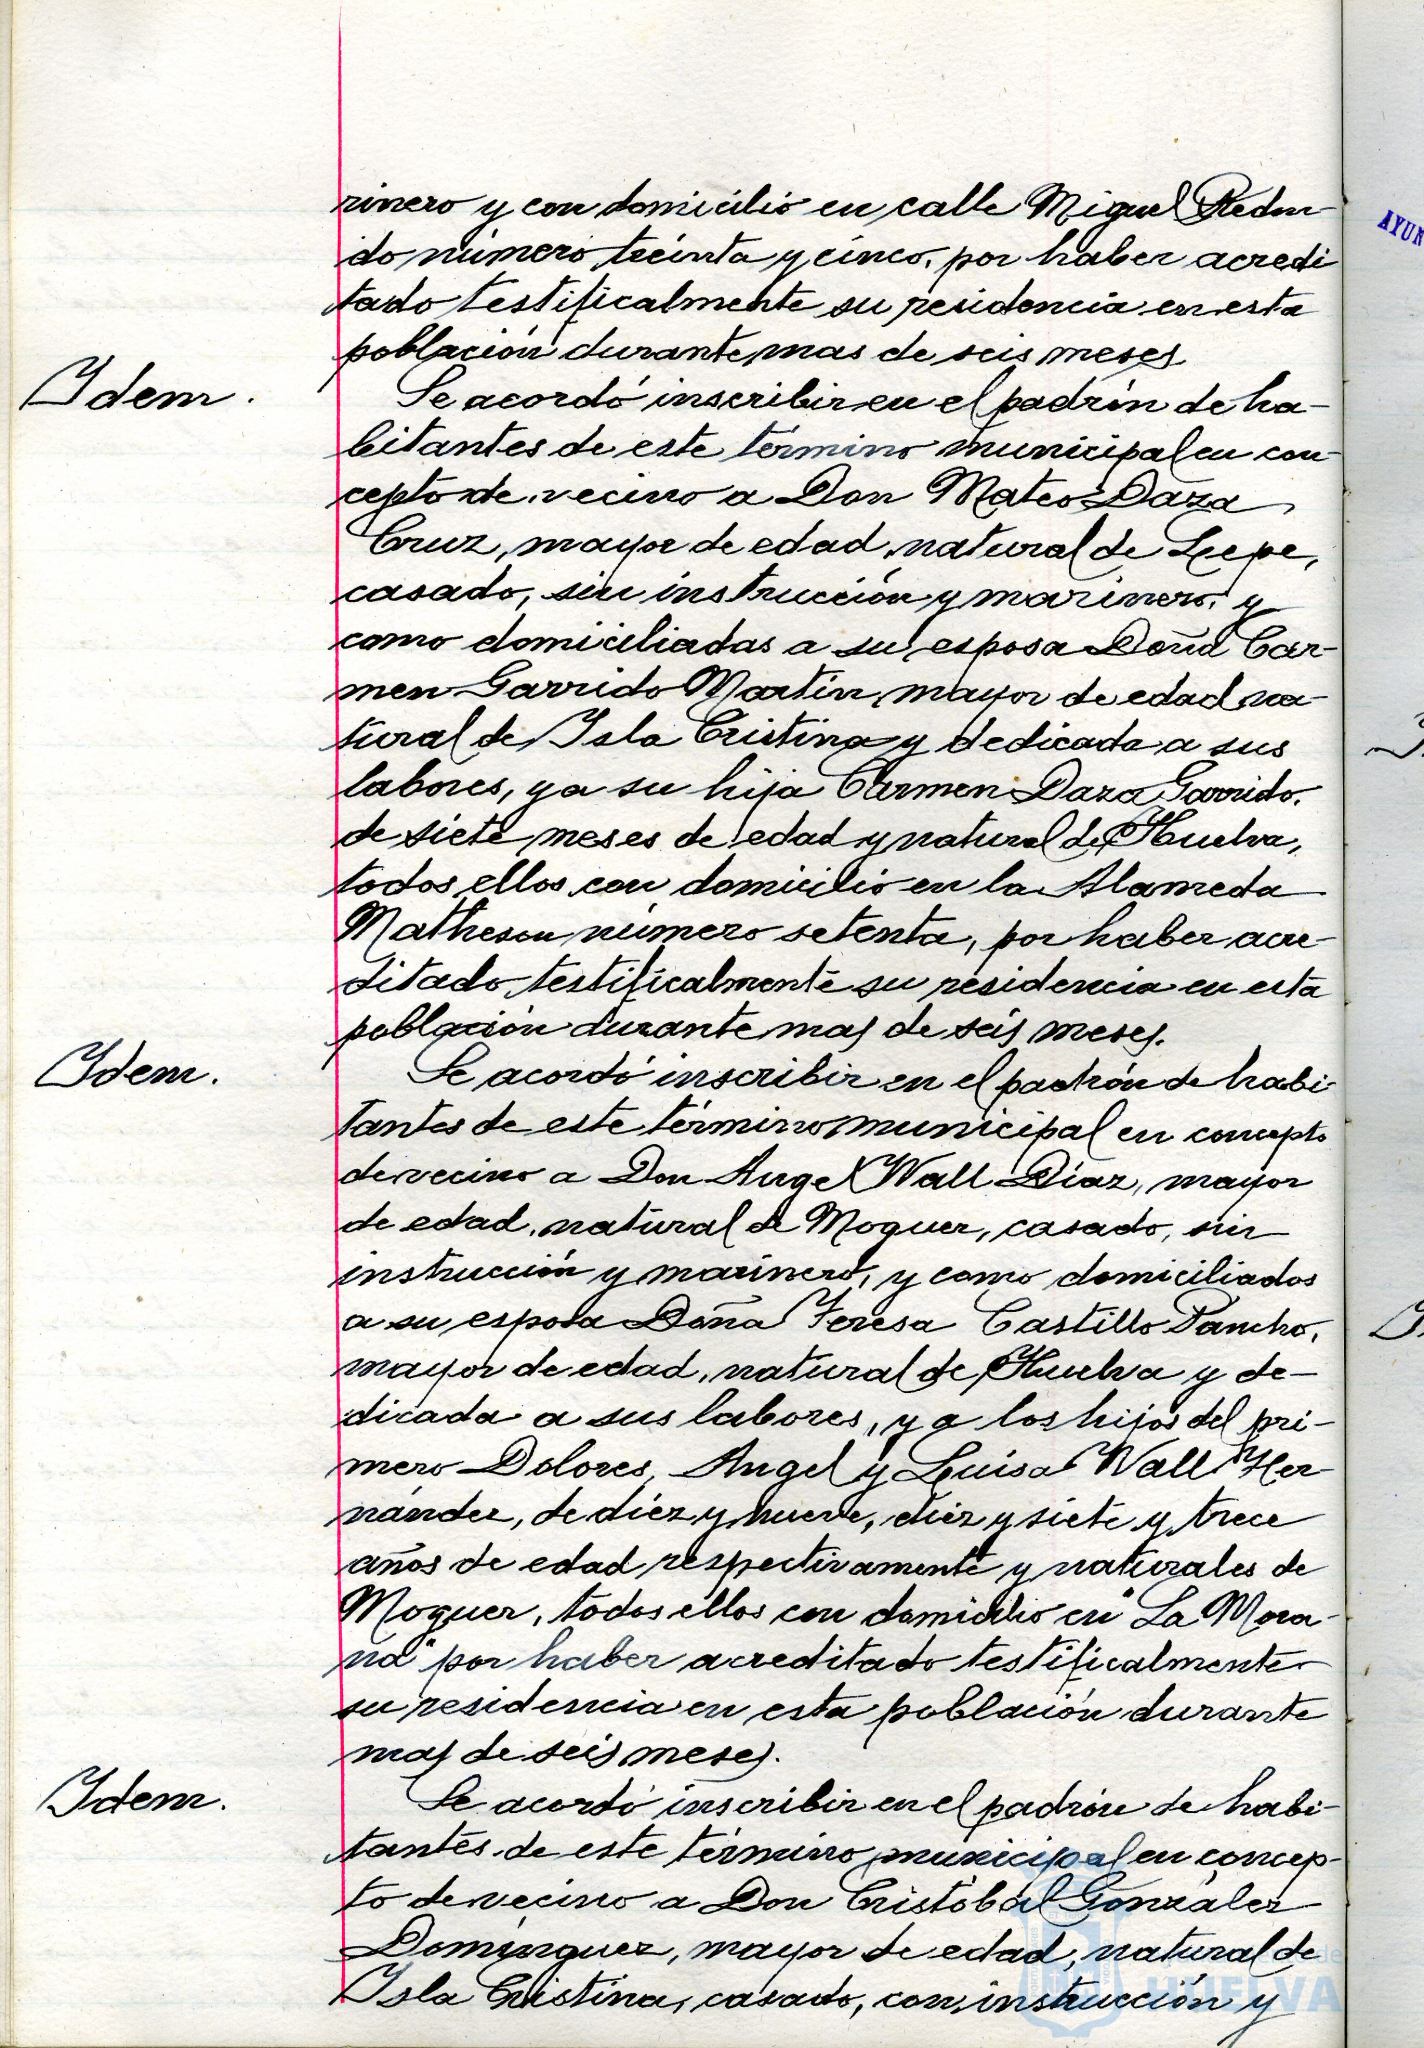 rinero y con domicilio en calle Miguel Redon-
do número treinta y cinco, por haber acredi
tado testificalmente su residencia en esta
población durante mas de seis meses
Idem.
Se acordó inscribir en el padrón de ha-
bitantes de este término municipal en con-
cepto de vecino a Don Mateo Daza
Cruz, mayor de edad, natural de Lepe,
casado, sin instrucción y marinero, y
como domiciliadas a su esposa Doña Car-
men Garrido Martín, mayor de edad, na-
tural de Isla Cristina y dedicada a sus
labores, y a su hija Carmen Daza Garrido,
de siete meses de edad y natural de Huelva,
todos ellos con domicilio en la Alameda
Matheson número setenta, por haber acre-
ditado testificalmente su residencia en esta
población durante mas de seis meses.
Idem.
Se acordó inscribir en el padrón de habi-
tantes de este término municipal en concepto
de vecino a Don Angel Wall Díaz, mayor
de edad, natural de Moguer, casado, sin
instrucción y marinero, y como domiciliados
a su esposa Doña Teresa Castillo Pancho,
mayor de edad, natural de Huelva y de-
dicada a sus labores, y a los hijos del pri-
mero Dolores, Angel y Luisa Wall Her-
nández, de diez y nueve, diez y siete y trece
años de edad respectivamente y naturales de
Moguer, todos ellos con domicilio en "La Mora-
na" por haber acreditado testificalmente
su residencia en esta población durante
mas de seis meses.
Idem.
Se acordó inscribir en el padrón de habi-
tantes de este término municipal en concep-
to de vecino a Don Cristóbal González
Domínguez, mayor de edad, natural de
Isla Cristina, casado, con instrucción y
AYUN
HUELVA